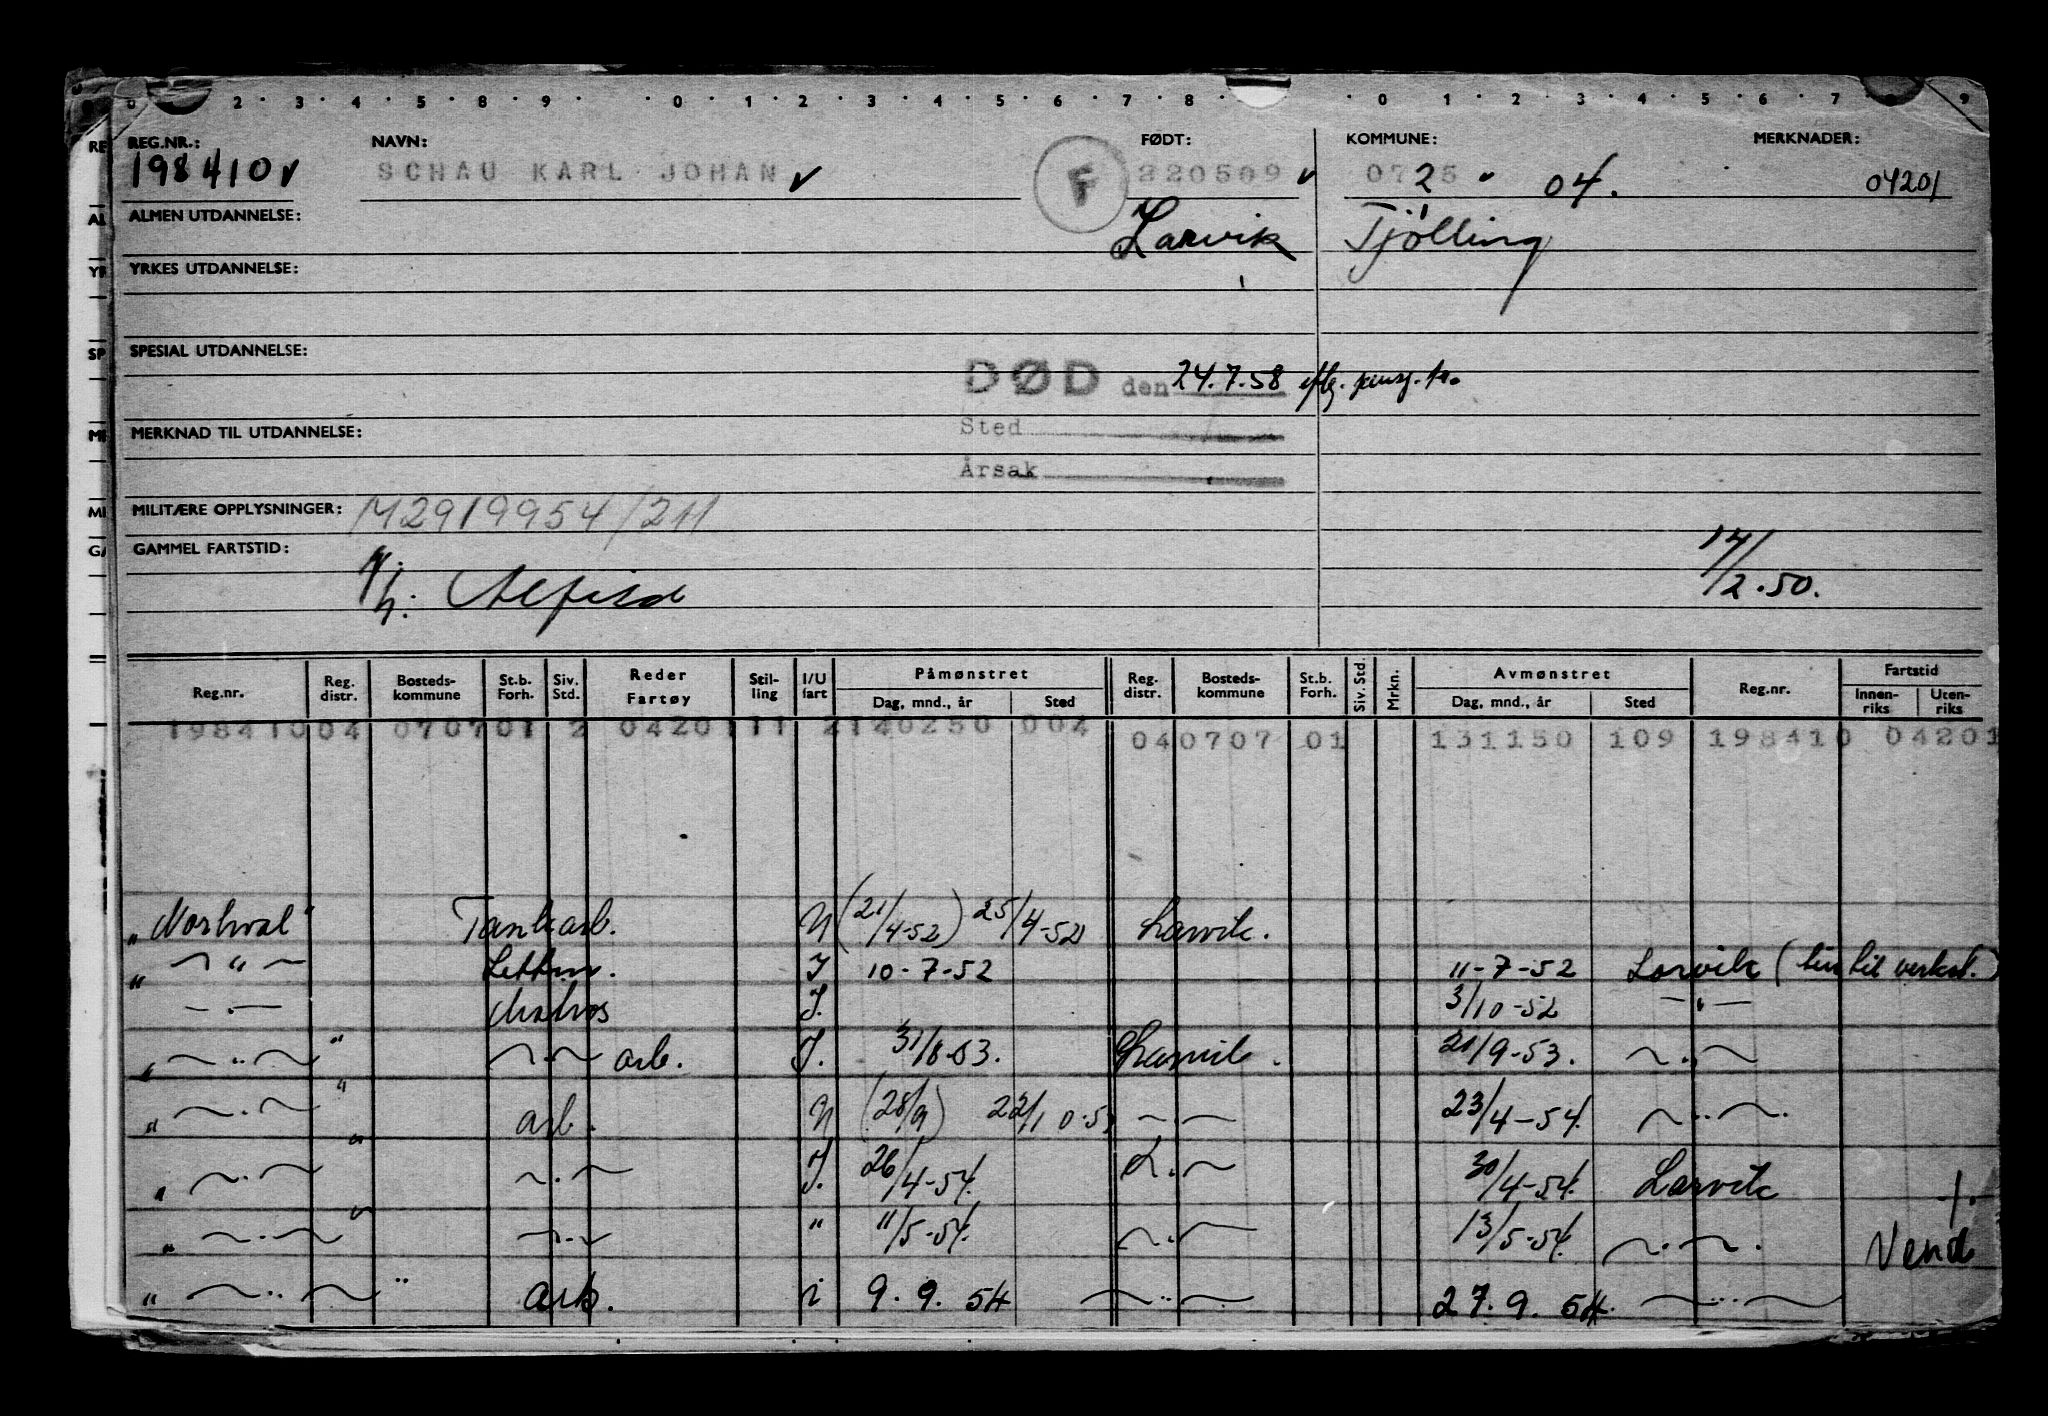 0 2 3 4 5 8 9 0 1 2 3 4 5 6 7 8 0 1 2 3 4 5 6 7 8 9
REG.NR.: NAVN: FØDT: KOMMUNE: MERKNADER:
198410 SCHAU KARL JOHAN F 220509 0725 2 04. 04201
ALMEN UTDANNELSE: Larvik Tjølling
YRKES UTDANNELSE:
SPESIAL UTDANNELSE:
DØD den 24.7.58
MERKNAD TIL UTDANNELSE: Sted
Årsak
MILITÆRE OPPLYSNINGER: M2919954/211
GAMMEL FARTSTID: 14/2.50.
Reg.nr. Reg. distr. Bosteds-kommune St.b. Forh. Siv. Std. Reder Fartøy Stil-ling I/U fart Påmønstret Reg. distr. Bosteds-kommune St.b. Forh. Siv. Std. Mrkn. Avmønstret Reg.nr. Fartstid
Dag, mnd., år Sted Dag, mnd., år Sted Innen-riks Uten-riks
198410 04 0707 01 2 04201 11 2 140250 004 04 0707 01 131150 109 198410 04201
"Norhval" Tankarb. U (21/4-52) 25/4-52 Larvik.
" — " — I 10-7-52 11-7-52 Larvik
— " — Matros I. 3/10-52 — " —
" — " — " — " — arb. I. 31/8-53. Larvik. 21/9-53. — " —
" — " — " arb. U (28/9) 22/10-53 — " — 23/4-54. — " —
" — " — " — " — I. 26/4-54. L. — 30/4-54. Larvik
" — " — " — " — " 11/5-54. — " — 13/5-54. — " — Vend
" — " — " arb. i 9. 9. 54 — " — 27. 9. 54. — " —